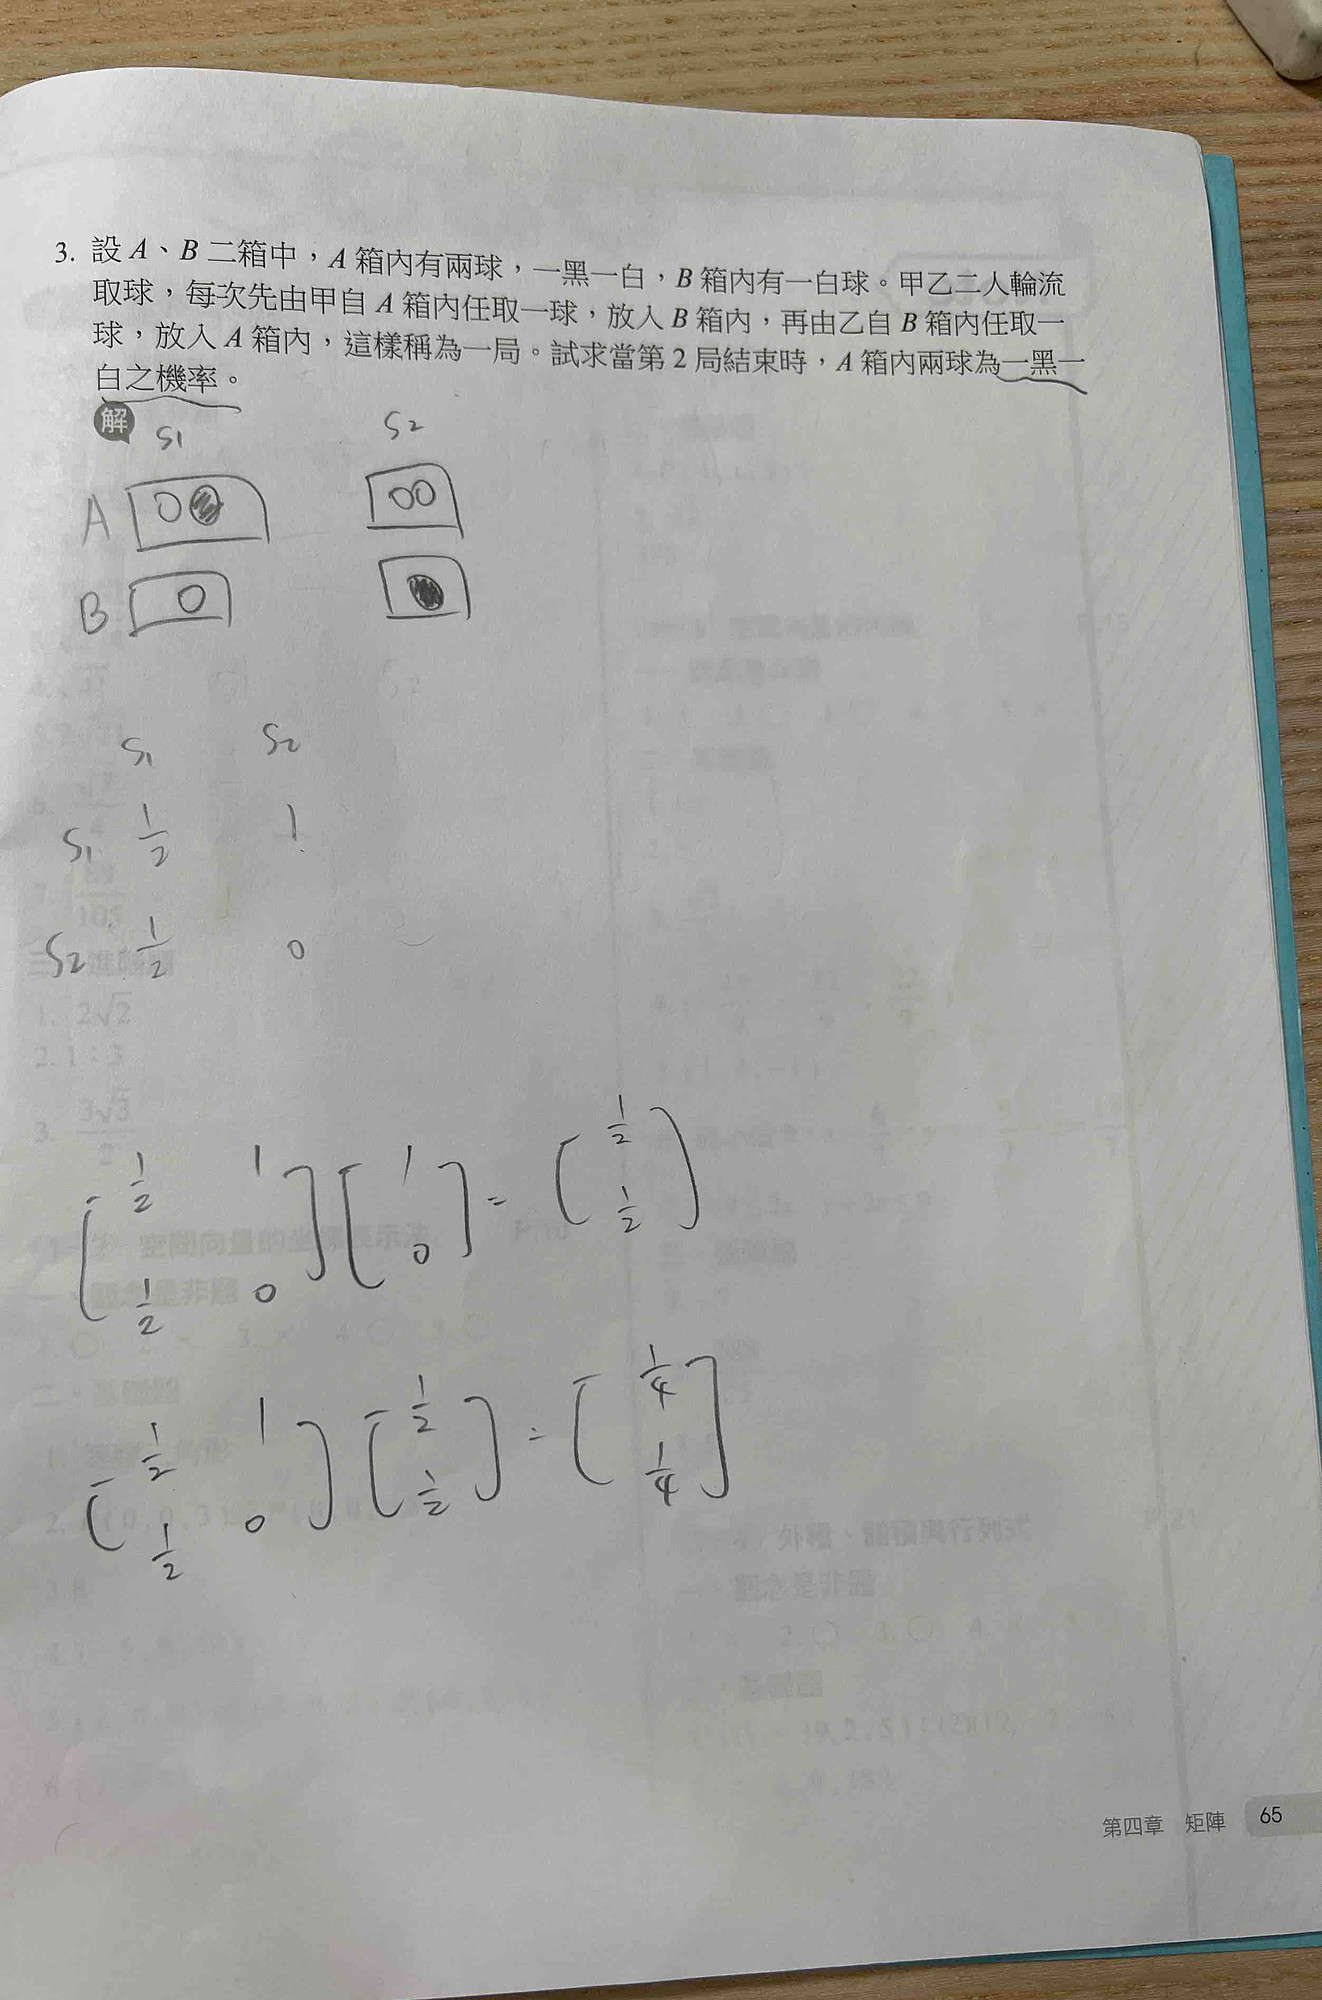 3. 設A、B二箱中，A箱內有兩球，一黑一白，B箱內有一白球。甲乙二人輪流
取球，每次先由甲自A箱內任取一球，放入B箱內，再由乙自B箱內任取一
球，放入A箱內，這樣稱為一局。試求當第2局結束時，A箱內兩球為一黑一
白之機率。
解
S1 S2
A
B
S1 S2
S1 1/2 1
S2 1/2 0
[1/2 1
1/2 0] [1
0] = [1/2
1/2]
[1/2 1
1/2 0] [1/2
1/2] = [1/4
1/4]
第四章 矩陣 65